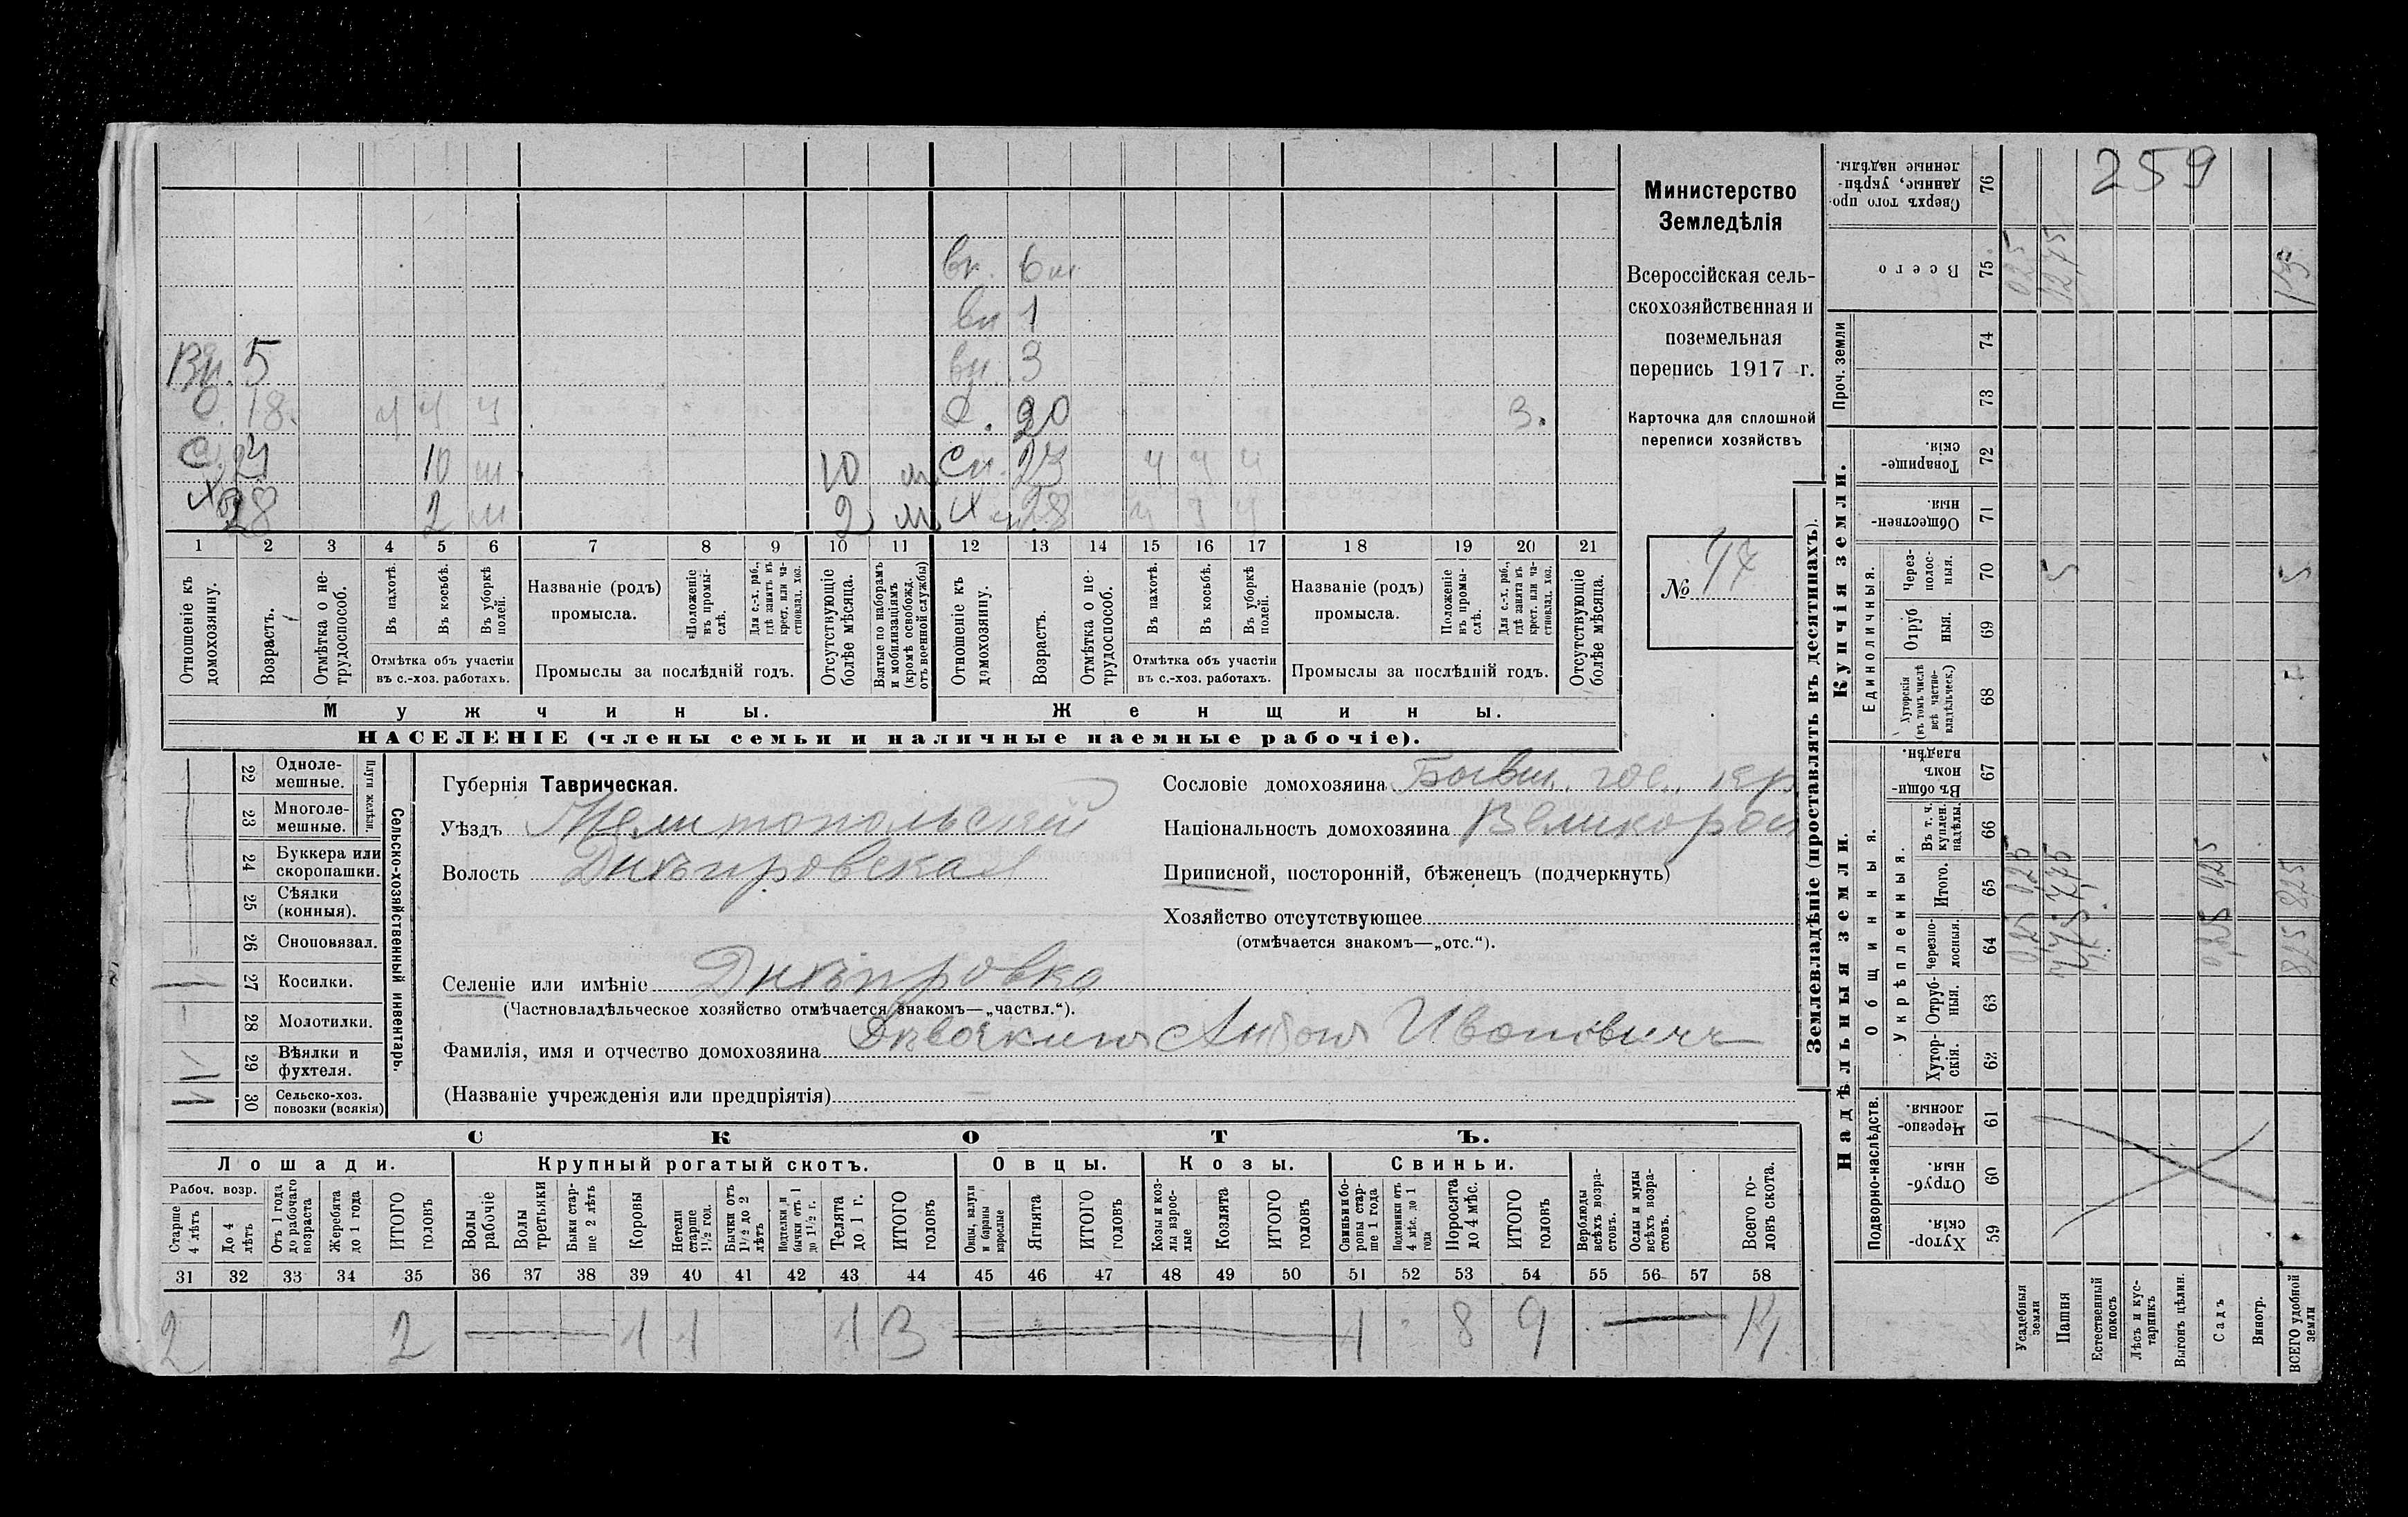 259
Вн. 6 м
Вн 1
Вн. 5 вн. 3
С. 18. ч ч ч 20 3.
С. 24 10 м 10 м Сн. 23 ч ч ч
Х 28 2 м 2 м Х 28 ч ч ч
1 2 3 4 5 6 7 8 9 10 11 12 13 14 15 16 17 18 19 20 21
Отношеніе къ домохозяину.
Возрастъ.
Отмѣтка о нетрудоспособ.
Въ пахотѣ.
Въ косьбѣ.
Въ уборкѣ полей.
Отмѣтка объ участіи въ с.-хоз. работахъ.
Названіе (родъ) промысла.
Положеніе въ промыслѣ.
Для с.-х. раб., гдѣ занятъ въ крест. или частновлад. хоз.
Промыслы за послѣдній годъ.
Отсутствующіе болѣе мѣсяца.
Взятые по наборамъ и мобилизаціямъ (кромѣ освобожд. отъ военной службы)
Отношеніе къ домохозяину.
Возрастъ.
Отмѣтка о нетрудоспособ.
Въ пахотѣ.
Въ косьбѣ.
Въ уборкѣ полей.
Отмѣтка объ участіи въ с.-хоз. работахъ.
Названіе (родъ) промысла.
Положеніе въ промыслѣ.
Для с.-х. раб., гдѣ занята въ крест. или частновлад. хоз.
Промыслы за послѣдній годъ.
Отсутствующіе болѣе мѣсяца.
Мужчины. Женщины.
НАСЕЛЕНІЕ (члены семьи и наличные наемные рабочіе).
Министерство
Земледѣлія
Всероссійская сель-
скохозяйственная и
поземельная
перепись 1917 г.
Карточка для сплошной
переписи хозяйствъ
№ 47
Сельско-хозяйственный инвентарь.
Плуги желѣзн.
22 Однолемешные.
23 Многолемешные.
24 Буккера или скоропашки.
25 Сѣялки (конныя).
26 Сноповязал.
27 Косилки. 1
28 Молотилки. –
29 Вѣялки и фухтеля. 1
30 Сельско-хоз. повозки (всякія)
Губернія Таврическая.
Уѣздъ Мелитопольскій
Волость Днѣпровская
Селеніе или имѣніе Днѣпровка
(Частновладѣльческое хозяйство отмѣчается знакомъ—„частвл.“).
Фамилія, имя и отчество домохозяина Дѣвочкинъ Антонъ Ивановичъ
(Названіе учрежденія или предпріятія)
Сословіе домохозяина Бывш. гос. кр
Національность домохозяина Великорос
Приписной, посторонній, бѣженецъ (подчеркнуть)
Хозяйство отсутствующее
(отмѣчается знакомъ—„отс.“).
СКОТЪ.
Лошади. Крупный рогатый скотъ. Овцы. Козы. Свиньи.
Рабоч. возр.
Старше 4 лѣтъ
До 4 лѣтъ
Отъ 1 года до рабочаго возраста
Жеребята до 1 года
ИТОГО головъ
Волы рабочіе
Волы третьяки
Быки старше 2 лѣтъ
Коровы
Нетели старше 1½ год.
Бычки отъ 1½ до 2 лѣтъ
Подтелки и бычки отъ 1 до 1½ г.
Телята до 1 г.
ИТОГО головъ
Овцы, валухи и бараны взрослые
Ягнята
ИТОГО головъ
Козы и козлы взрослые
Козлята
ИТОГО головъ
Свиньи и боровы старше 1 года
Подсвинки отъ 4 мѣс. до 1 года
Поросята до 4 мѣс.
ИТОГО головъ
Верблюды всѣхъ возрастовъ.
Ослы и мулы всѣхъ возрастовъ.
Всего головъ скота.
31 32 33 34 35 36 37 38 39 40 41 42 43 44 45 46 47 48 49 50 51 52 53 54 55 56 57 58
2 2 1 1 1 3 1 8 9 14
Землевладѣніе (проставлять въ десятинахъ).
Надѣльныя земли. Купчія земли. Проч. земли
Подворно-наслѣдств. Общинныя. Укрѣпленныя. Единоличныя.
59 Хуторскія
60 Отрубныя
61 Черезполосныя
62 Хуторскія.
63 Отрубныя.
64 Черезполосныя. 0,25 7,75 0,25 8,25
65 Итого. 0,25 7,75 0,25 8,25
66 Въ т. ч. куплен. надѣлы.
67 Въ общинномъ владѣн.
68 Хуторскія (въ томъ числѣ всѣ частновладѣльческ.)
69 Отрубныя.
70 Черезполосныя. 5 5
71 Общественныя.
72 Товарищескія.
73
74
75 Всего 0,25 12,75
76 Сверхъ того проданные, укрѣпленные надѣлы.
Усадебныя земли
Пашня
Естественный покосъ
Лѣсъ и кустарникъ
Выгонъ цѣлин.
Садъ
Виногр.
ВСЕГО удобной земли